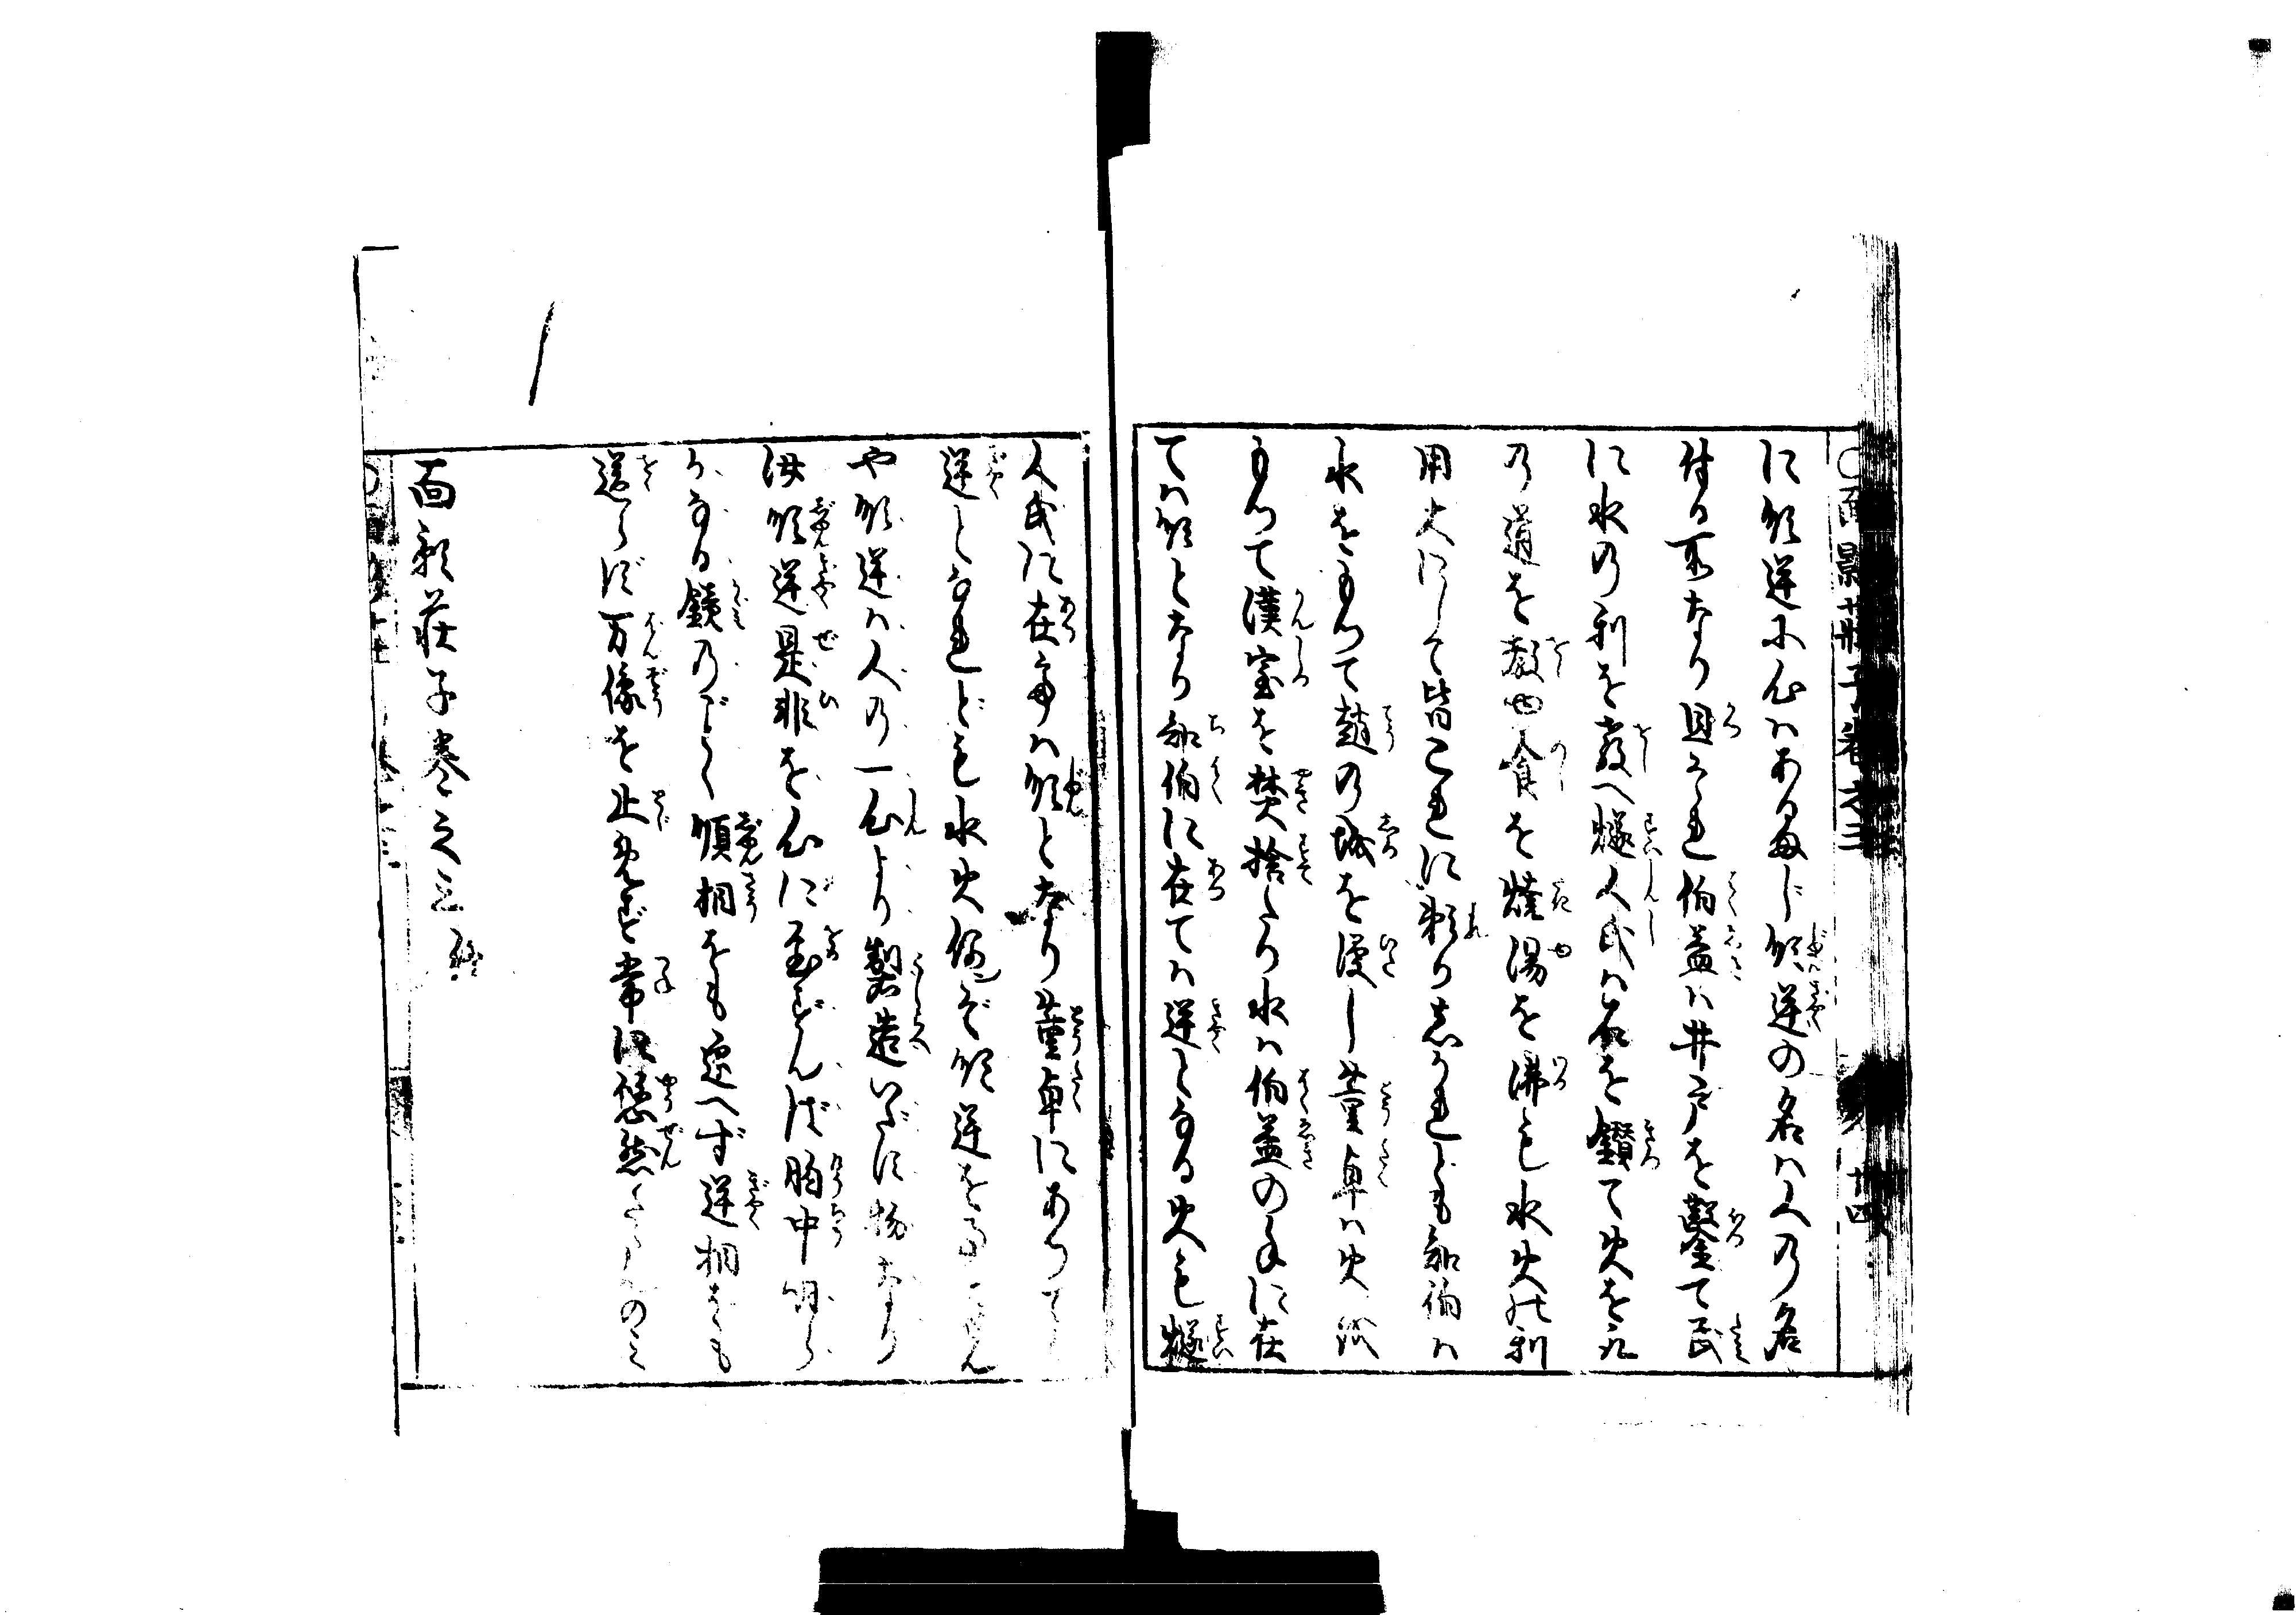 に順逆の心はあるまじ順逆の名は人の名
付る所なり因てこれ伯益は井戸を鑿て民
に水の利を教へ燧人氏は石を鑚て火を取
の道を教ゆ食を焼湯を沸も水火の利
用大にして皆これに頼りしかれども知伯は
水をもつて趙の城を浸し董卓は火を
もつて漢室を焚捨たり水は伯益の手に在
ては順となり知伯に在ては逆となる火も燧
人氏に在ては順となり董卓にありては
逆となれども水火何ぞ順逆をあらん
や順逆は人の一心より製造いだす物なり
汝順逆是非を心に置ずんば胸中明ら
かなる鏡のごとく順相をも迎へず逆相をも
送らず万像を止めず常に悠然たらんのみ
面影荘子巻之三終
面影荘子巻之三
十四